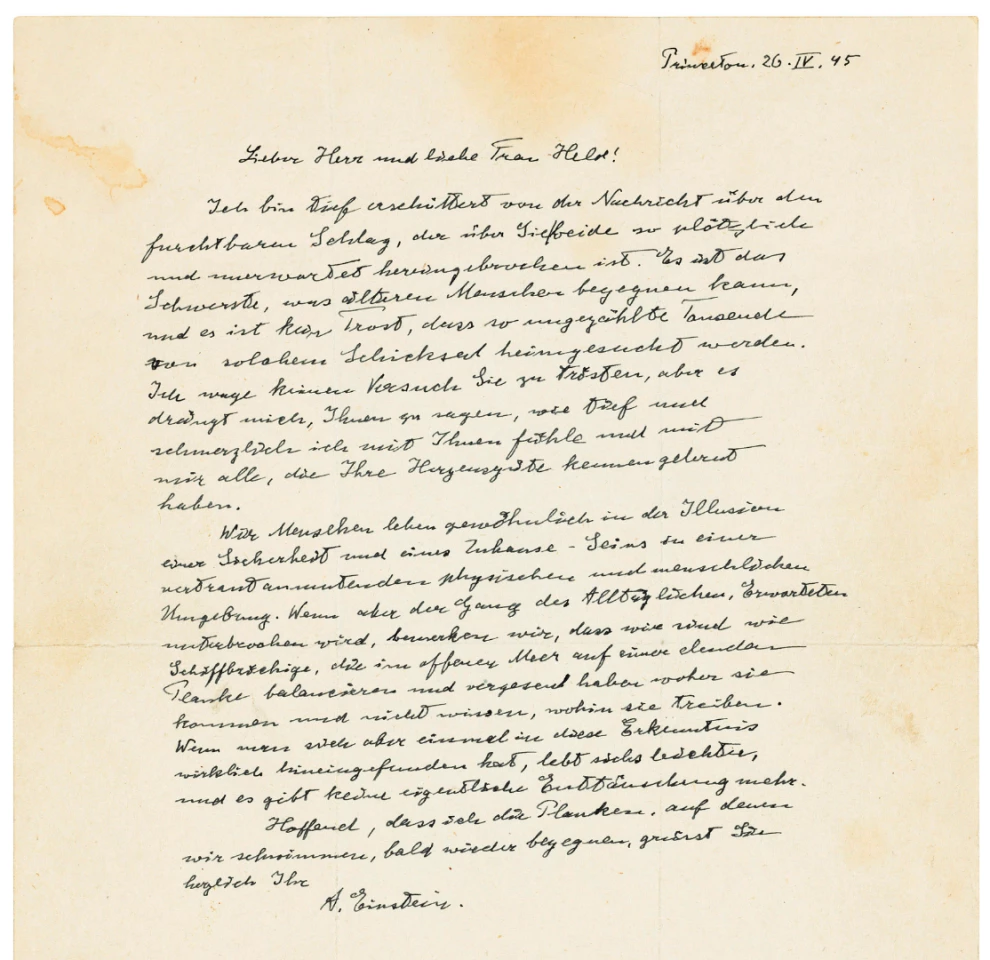 Princeton. 26. IV. 45
Lieber Herr und liebe Frau Held!
Ich bin tief erschüttert von der Nachricht über den
furchtbaren Schlag, der über Sie beide so plötzlich
und unerwartet hereingebrochen ist. Es ist das
Schwerste, was älteren Menschen begegnen kann,
und es ist kein Trost, dass so ungezählte Tausende
von solchem Schicksal heimgesucht werden.
Ich wage keinen Versuch Sie zu trösten, aber es
drängt mich, Ihnen zu sagen, wie tief und
schmerzlich ich mit Ihnen fühle und mit
mir alle, die Ihre Herzensgüte kennen gelernt
haben.
Wir Menschen leben gewöhnlich in der Illusion
einer Sicherheit und eines Zuhause-Seins in einer
vertraut anmutenden physischen und menschlichen
Umgebung. Wenn aber der Gang des Alltäglichen, Erwarteten
unterbrochen wird, bemerken wir, dass wir sind wie
Schiffbrüchige, die im offenen Meer auf einer elenden
Planke balancieren und vergessen haben woher sie
kommen und nicht wissen, wohin sie treiben.
Wenn man sich aber einmal in diese Erkenntnis
wirklich hineingefunden hat, lebt sichs leichter,
und es gibt keine eigentliche Enttäuschung mehr.
Hoffend, dass sich die Planken, auf denen
wir schwimmen, bald wieder begegnen, grüsst Sie
herzlich Ihr
A. Einstein.